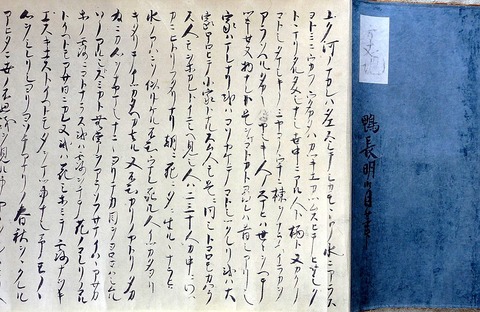 方丈記
鴨長明自筆
ユク河ノナカレハタエスシテシカモヽトノ水ニアラス
ヨトミニウカフウタカタハカツキエカツムスヒテヒサシク
トヽマリタルタメシナシ世中ニアル人ト栖ト又カクノ
コトシタマシキノミヤコノウチニ棟ヲナラヘイラカヲ
アラソヘルタカキイヤシキ人ノスマヒハ世ヽヲヘテ
ツキセヌ物ナレト是ヲマコトカト尋レハ昔シアリシ
家ハマレナリ或ハコソヤケテコトシツクレリ或ハ大
家ホロヒテ小家トナルスム人モ是ニ同シトコロモカハラ
ス人モヲホカレトイニシヘ見シ人ハ二三十人カ中ニワツ
カニヒトリフタリナリ朝ニ死ニ夕ニ生ルヽナラヒ但
水ノアハニソ似リケル不知ウマレ死ル人イツカタヨリ
キタリテイツカタヘカ去ル又不知カリノヤトリタカ
為ニカ心ヲナヤマシナニヽヨリテカ目ヲヨロコハシムル
ソノアルシトスミカト無常ヲアラソフサマイハヽアサカ
ホノ露ニコトナラス或ハ露ヲチテ花ノコレリノコル
トイヘトモアサ日ニカレヌ或ハ花シホミテ露ナヲキ
エスキエストイヘトモ夕ヲマツ事ナシ予モノヽ
心ヲシレリシヨリヨソチアマリノ春秋ヲヽクレル
アヒタニ世ノ不思議ヲ見ル事